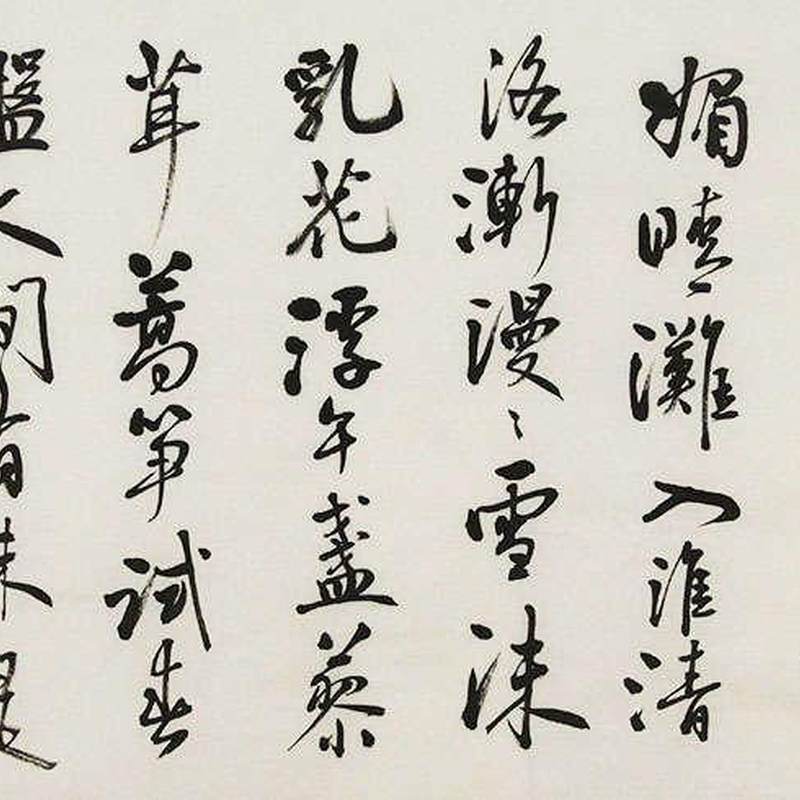 媚晴灘入淮清
洛漸漫〻雪沫
乳花浮午盞蓼
茸蒿笋試春
盤人間有味是